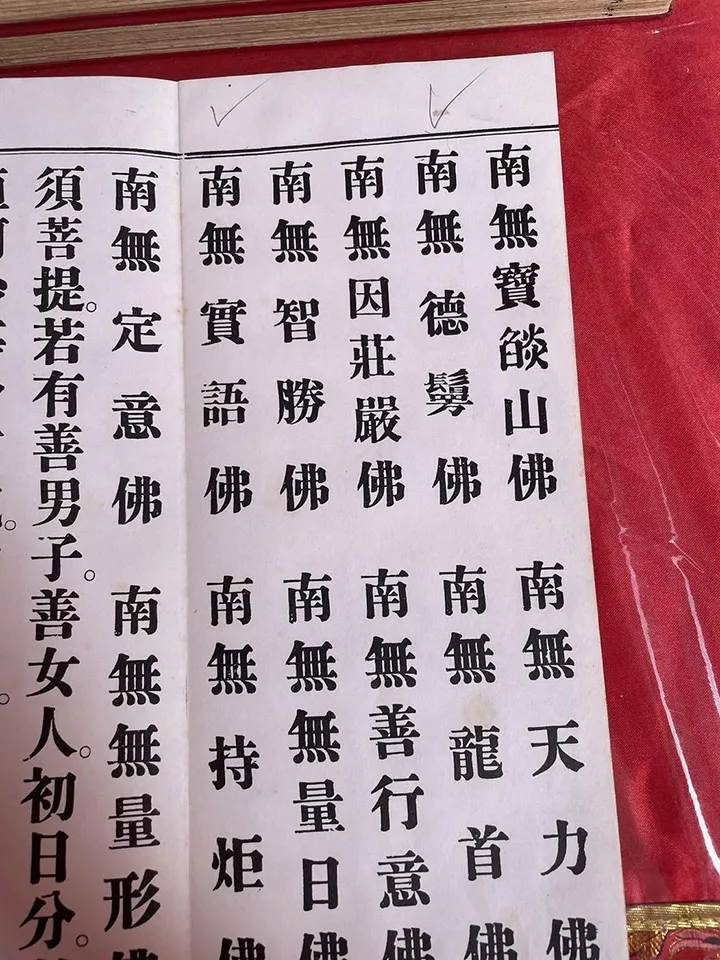 南無寶燄山佛　南無天力佛
南無德鬘佛　南無龍首佛
南無因莊嚴佛　南無善行意佛
南無智勝佛　南無無量日佛
南無實語佛　南無持炬佛
南無定意佛　南無無量形佛
須菩提。若有善男子。善女人。初日分。